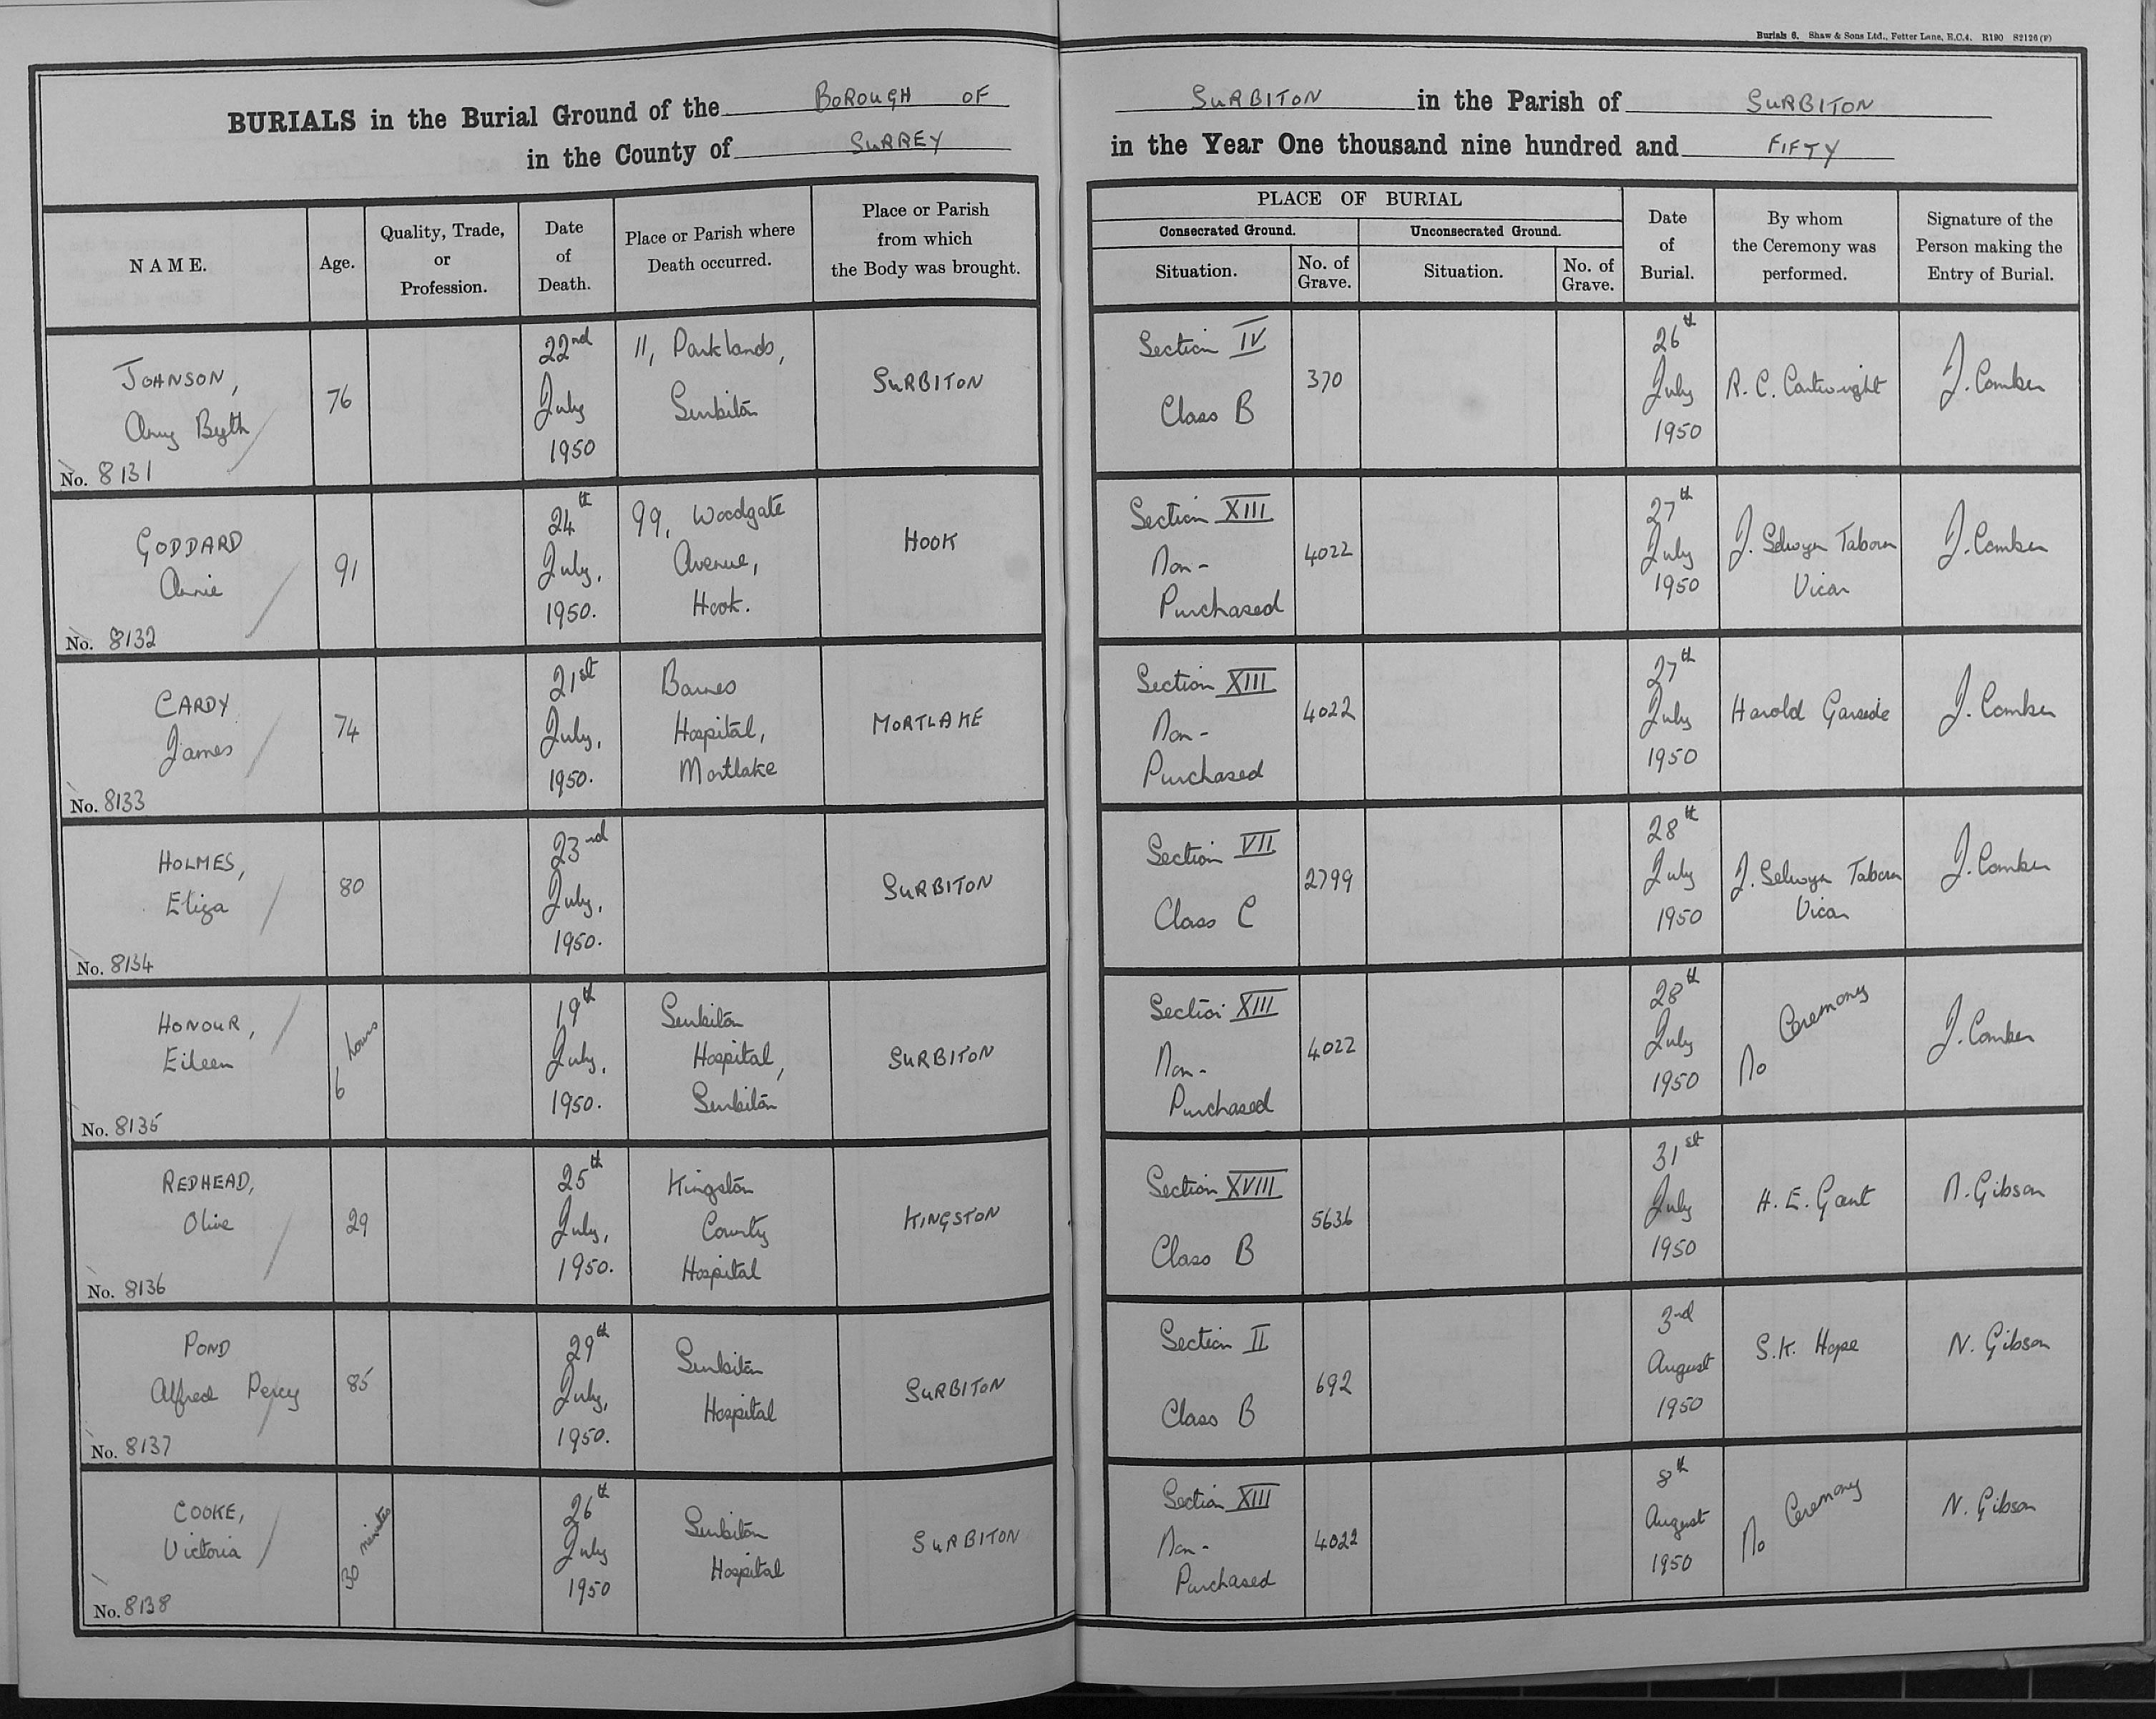 Burials 6. Shaw & Sons Ltd., Fetter Lane, E.C.4. R190 S2126 (F)
BURIALS in the Burial Ground of the BOROUGH OF SURBITON in the Parish of SURBITON
in the County of SURREY in the Year One thousand nine hundred and FIFTY
NAME.
Age.
Quality, Trade,
or
Profession.
Date
of
Death.
Place or Parish where
Death occurred.
Place or Parish
from which
the Body was brought.
PLACE OF BURIAL
Consecrated Ground.
Unconsecrated Ground.
Situation.
No. of
Grave.
Situation.
No. of
Grave.
Date
of
Burial.
By whom
the Ceremony was
performed.
Signature of the
Person making the
Entry of Burial.
JOHNSON,
Amy Byth
No. 8131
76
22nd
July
1950
11, Parklands,
Surbiton
SURBITON
Section IV
Class B
370
26th
July
1950
R. C. Cartwright
J. Comber
GODDARD
Annie
No. 8132
91
24th
July,
1950.
99, Woodgate
Avenue,
Hook.
HOOK
Section XIII
Non-
Purchased
4022
27th
July
1950
J. Selwyn Taborn
Vicar
J. Comber
CARDY
James
No. 8133
74
21st
July,
1950.
Barnes
Hospital,
Mortlake
MORTLAKE
Section XIII
Non-
Purchased
4022
27th
July
1950
Harold Garside
J. Comber
HOLMES,
Eliza
No. 8134
80
23rd
July,
1950.
SURBITON
Section VII
Class C
2799
28th
July
1950
J. Selwyn Taborn
Vicar
J. Comber
HONOUR,
Eileen
No. 8135
6 hours
19th
July,
1950.
Surbiton
Hospital,
Surbiton
SURBITON
Section XIII
Non-
Purchased
4022
28th
July
1950
No Ceremony
J. Comber
REDHEAD,
Olive
No. 8136
29
25th
July,
1950.
Kingston
County
Hospital
KINGSTON
Section XVIII
Class B
5636
31st
July
1950
H. E. Gant
N. Gibson
POND
Alfred Percy
No. 8137
85
29th
July,
1950.
Surbiton
Hospital
SURBITON
Section II
Class B
692
3rd
August
1950
S.K. Hope
N. Gibson
COOKE,
Victoria
No. 8138
30 minutes
26th
July
1950
Surbiton
Hospital
SURBITON
Section XIII
Non-
Purchased
4022
8th
August
1950
No Ceremony
N. Gibson